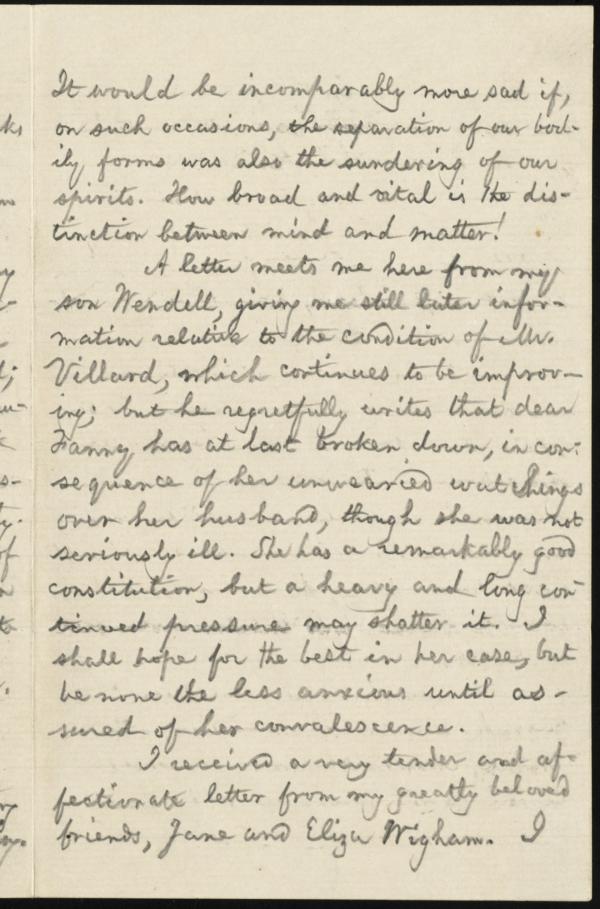 It would be incomparably more sad if,
on such occasions, the separation of our bod-
ily forms was also the sundering of our
spirits. How broad and vital is the dis-
tinction between mind and matter!
A letter meets me here from my
son Wendell, giving me still later infor-
mation relative to the condition of Mr.
Villard, which continues to be improv-
ing; but he regretfully writes that dear
Fanny has at last broken down, in con-
sequence of her unwearied watchings
over her husband, though she was not
seriously ill. She has a remarkably good
constitution, but a heavy and long con-
tinued pressure may shatter it. I
shall hope for the best in her case, but
be none the less anxious until as-
sured of her convalescence.
I received a very tender and af-
fectionate letter from my greatly beloved
friends, Jane and Eliza Wigham. I